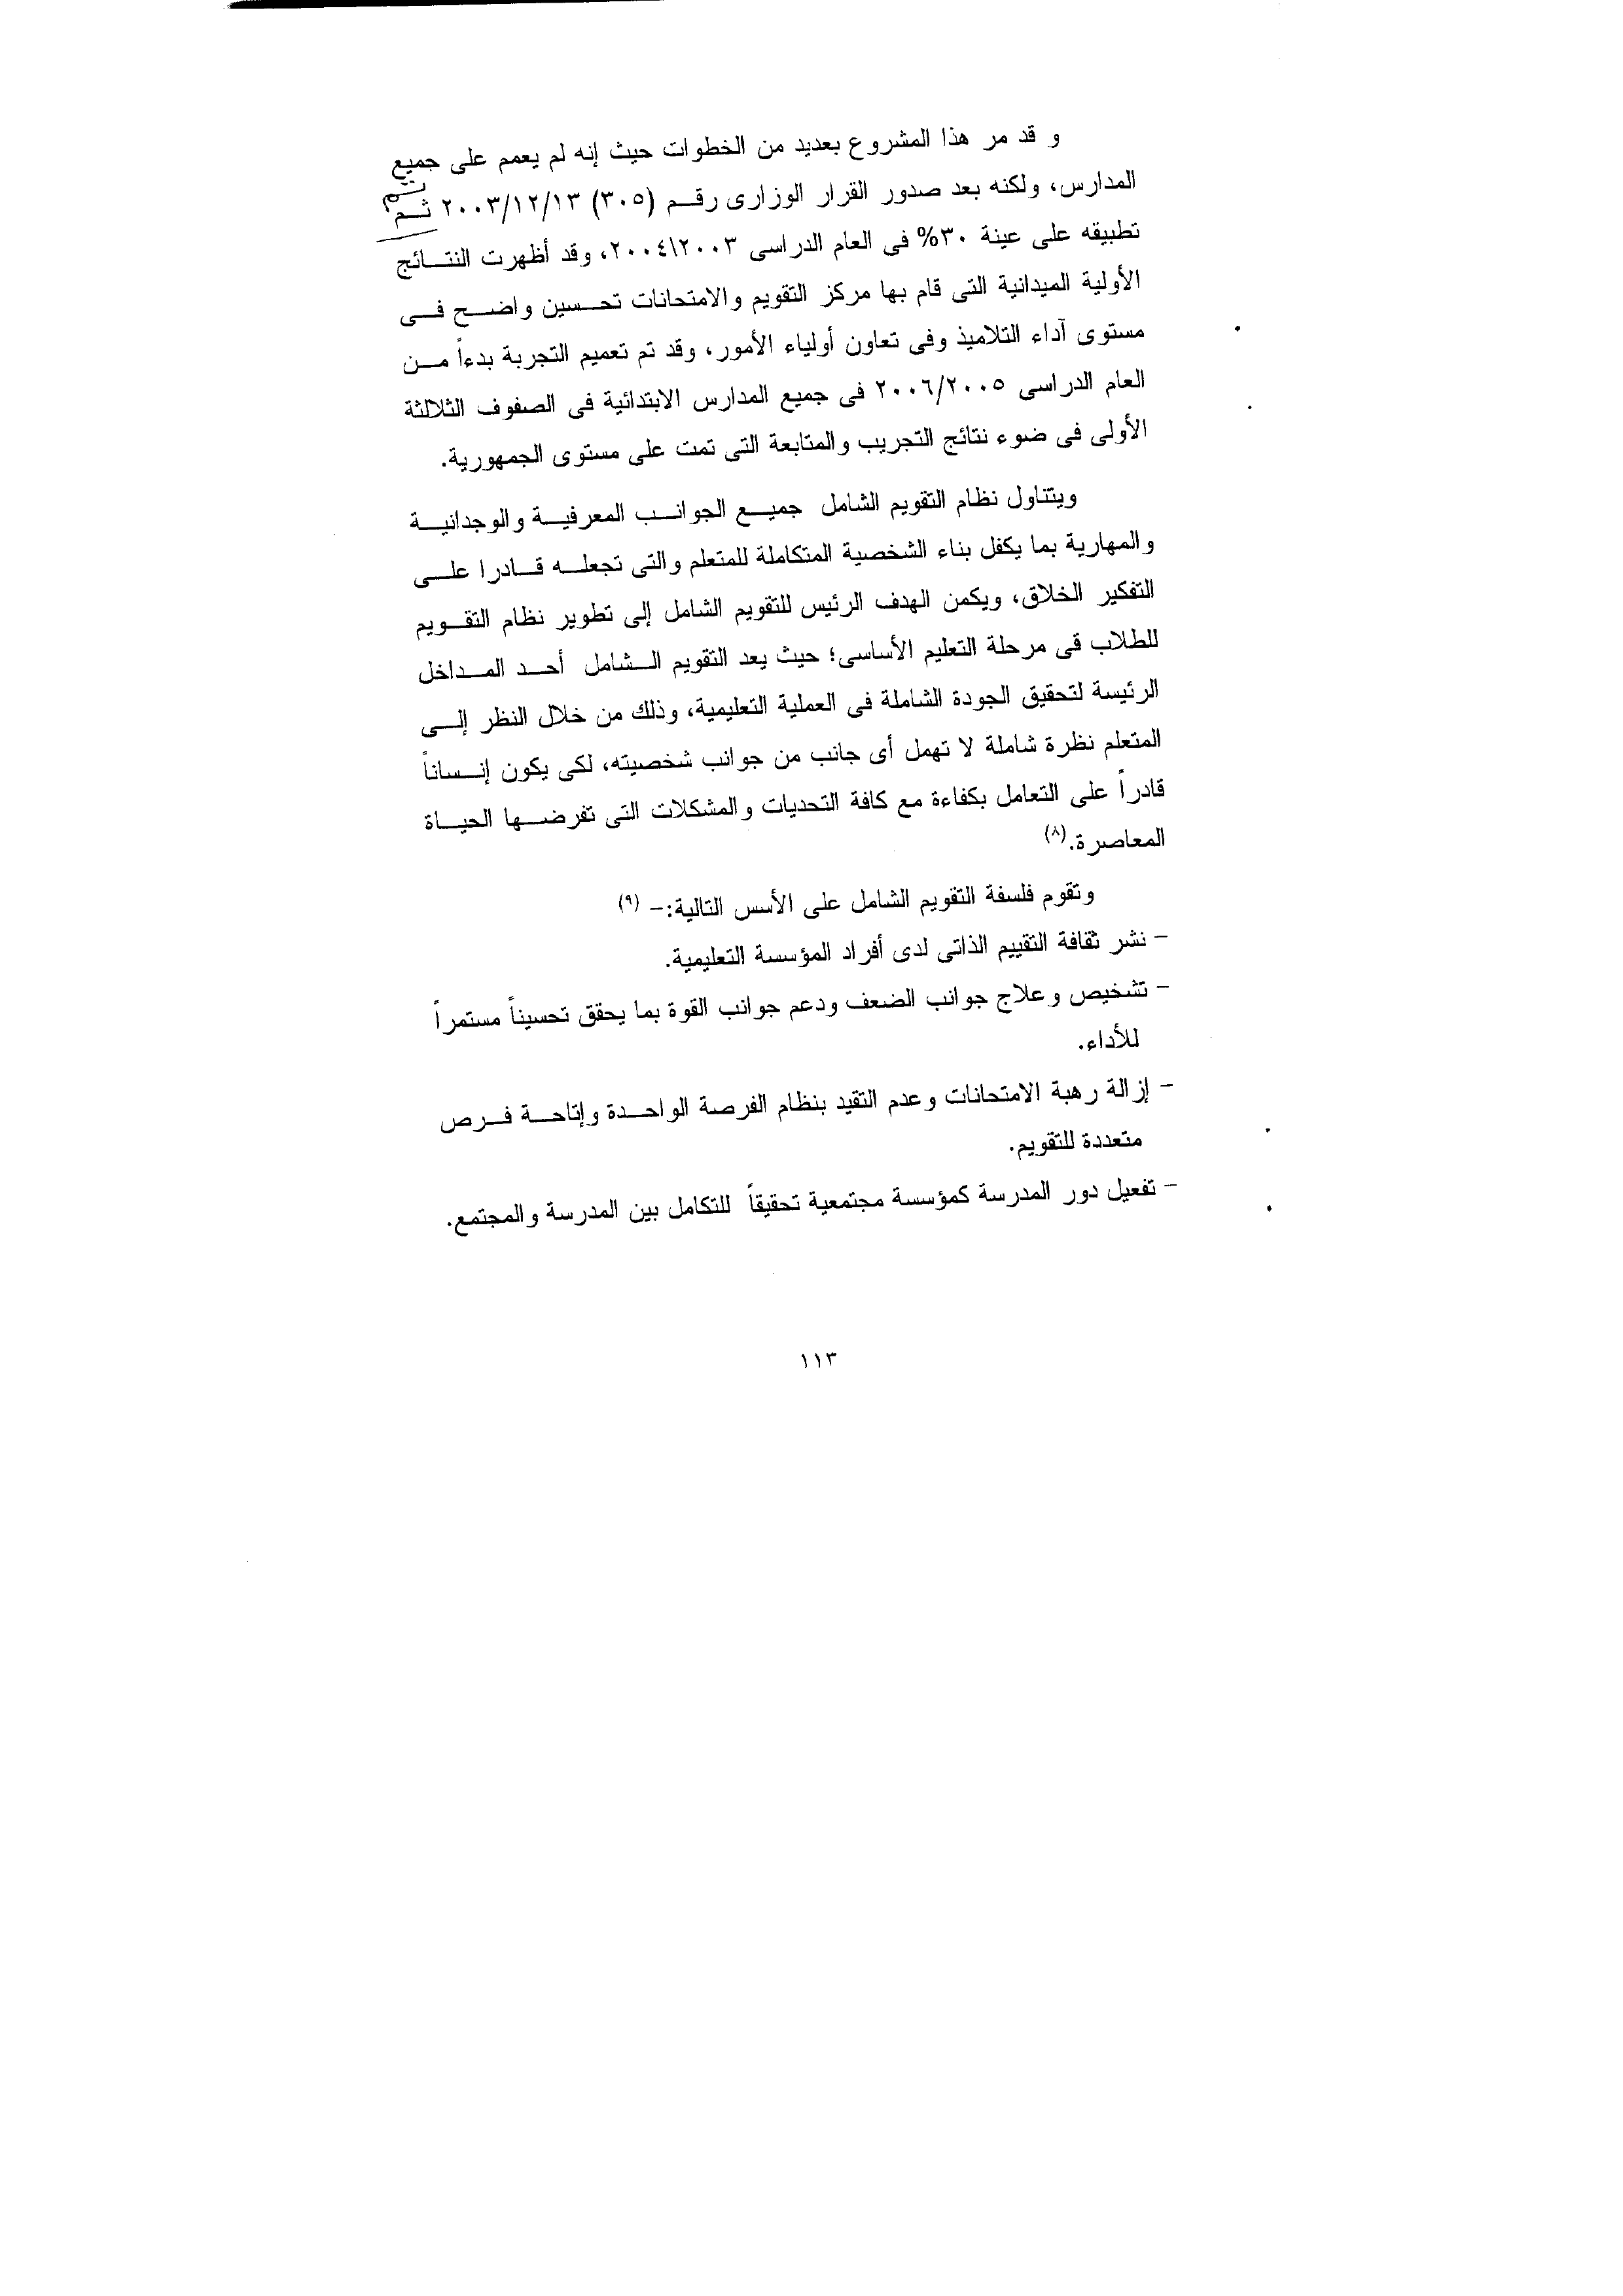 و قد مر هذا المشروع بعديد من الخطوات حيث إنه لم يعمم على جميع
المدارس، ولكنه بعد صدور القرار الوزارى رقم (٣٠٥) ٢٠٠٣/١٢/١٣ ثم
تطبيقه على عينة ٣٠% فى العام الدراسى ٢٠٠٣\٢٠٠٤، وقد أظهرت النتائج
الأولية الميدانية التى قام بها مركز التقويم والامتحانات تحسين واضح فى
مستوى آداء التلاميذ وفى تعاون أولياء الأمور، وقد تم تعميم التجربة بدءاً من
العام الدراسى ٢٠٠٦/٢٠٠٥ فى جميع المدارس الابتدائية فى الصفوف الثلالثة
الأولى فى ضوء نتائج التجريب والمتابعة التى تمت على مستوى الجمهورية.
ويتناول نظام التقويم الشامل جميع الجوانب المعرفية والوجدانية
والمهارية بما يكفل بناء الشخصية المتكاملة للمتعلم والتى تجعله قادرا على
التفكير الخلاق، ويكمن الهدف الرئيس للتقويم الشامل إلى تطوير نظام التقويم
للطلاب قى مرحلة التعليم الأساسى؛ حيث يعد التقويم الشامل أحد المداخل
الرئيسة لتحقيق الجودة الشاملة فى العملية التعليمية، وذلك من خلال النظر إلى
المتعلم نظرة شاملة لا تهمل أى جانب من جوانب شخصيته، لكى يكون إنساناً
قادراً على التعامل بكفاءة مع كافة التحديات والمشكلات التى تفرضها الحياة
المعاصرة.(٨)
وتقوم فلسفة التقويم الشامل على الأسس التالية:- (٩)
- نشر ثقافة التقييم الذاتى لدى أفراد المؤسسة التعليمية.
- تشخيص وعلاج جوانب الضعف ودعم جوانب القوة بما يحقق تحسيناً مستمراً
للأداء.
- إزالة رهبة الامتحانات وعدم التقيد بنظام الفرصة الواحدة وإتاحة فرص
متعددة للتقويم.
- تفعيل دور المدرسة كمؤسسة مجتمعية تحقيقاً للتكامل بين المدرسة والمجتمع.
١١٣